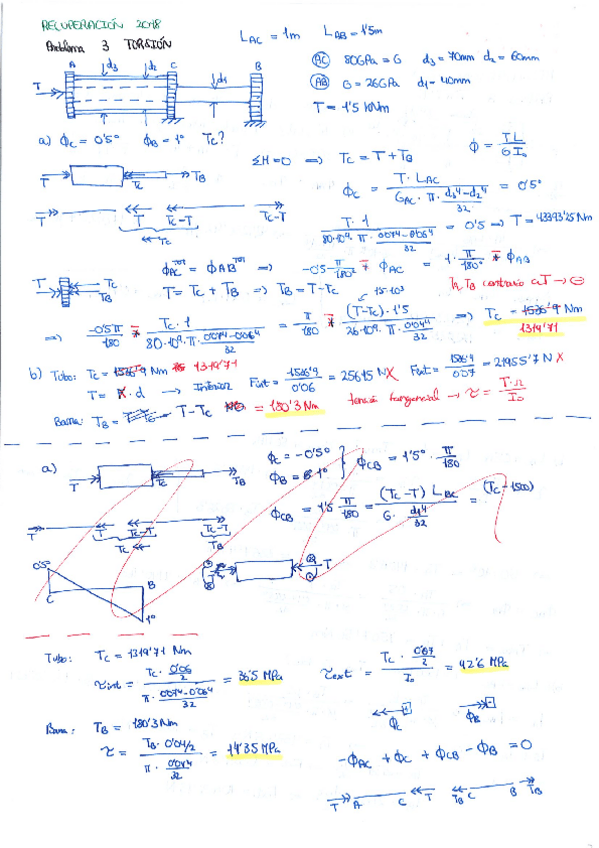 RECUPERACIÓN 2018
Problema 3 TORSIÓN
L_AC = 1m L_AB = 1'5m
(AC) 80GPa = G d₃ = 70mm d₂ = 60mm
(AB) G = 26GPa d₁ = 40mm
T = 1'5 kNm
A d₃ d₂ C d₁ B
T
a) ϕ_C = 0'5° ϕ_B = 1° T_C?
ΣH=0 ⟹ T_C = T + T_B
ϕ = TL / G I₀
T T_C T_B
ϕ_C = T · L_AC / (G_AC · π · (d₃⁴ - d₂⁴)/32) = 0'5°
T T T_C-T T_C-T
T_C
T · 1 / (80·10⁹ · π · (0'07⁴ - 0'06⁴)/32) = 0'5 ⟹ T = 43393'25 Nm
ϕ_AC^TOT = ϕ_AB^TOT ⟹ -0'5 π/180° ∓ ϕ_AC = 1 · π/180° ∓ ϕ_AB
T T_C T_B
T = T_C + T_B ⟹ T_B = T - T_C
T_C, T_B contrario a T → ⊖
15·10³
⟹ -0'5π/180 ∓ T_C · 1 / (80·10⁹ · π · (0'07⁴ - 0'06⁴)/32) = π/180 ∓ (T-T_C) · 1'5 / (26·10⁹ · π · 0'04⁴/32) ⟹ T_C = 1536'9 Nm
1319'71
b) Tubo: T_C = 1536'9 Nm 1319'71
T = F · d → Interior F_int = 1536'9/0'06 = 25615 N X F_ext = 1536'9/0'07 = 21955'7 N X
Barra: T_B = T - T_C = 180'3 Nm
tensión tangencial → τ = T·r / I₀
a)
T T_C T_B
ϕ_C = -0'5°
ϕ_B = 1°
} ϕ_CB = 1'5° · π/180
ϕ_CB = 1'5 π/180 = (T_C - T) L_BC / (G · d₁⁴/32) = (T_C - 1500)
T T_C-T T_C-T
T_C T_B
0'5°
C B
1°
T
Tubo: T_C = 1319'71 Nm
τ_int = T_C · 0'06/2 / (π · (0'07⁴ - 0'06⁴)/32) = 36'5 MPa
τ_ext = T_C · 0'07/2 / I₀ = 42'6 MPa
Barra: T_B = 180'3 Nm
τ = T_B · 0'04/2 / (π · 0'04⁴/32) = 14'35 MPa
ϕ_C ϕ_B
-ϕ_AC + ϕ_C + ϕ_CB - ϕ_B = 0
T A C T T_B C B T_B